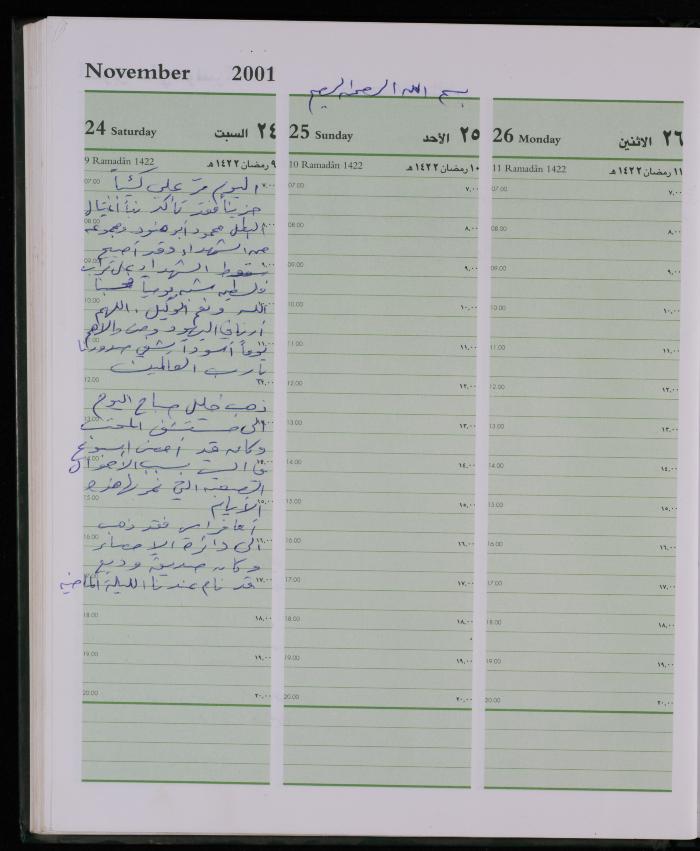 November 2001
بسم الله الرحمن الرحيم
24 Saturday السبت ٢٤
9 Ramadân 1422 ٩ رمضان ١٤٢٢هـ
اليوم مر علي كئيباً
حزيناً فقد تأكد نبأ اغتيال
البطل محمود أبو هنود ومجموعة
من الشهداء وقد أصبح
سقوط الشهداء على تراب
فلسطين شبه يومياً حسبنا
الله ونعم الوكيل. اللهم
أرنا في اليهود ومن والاهم
يوماً أسوداً يشفي صدورنا
يا رب العالمين
ذهب خليل صباح اليوم
الى مستشفى المقاصد
وكان قد أمضى اسبوع
في البيت بسبب الأحوال
الصعبة التي نمر بها هذه
الأيام
أما فراس فقد ذهب
الى دائرة الإحصاء
وكان صديقه وديع
قد نام عندنا الليلة الماضية
07:00 ٧,٠٠
08:00 ٨,٠٠
09:00 ٩,٠٠
10:00 ١٠,٠٠
11:00 ١١,٠٠
12:00 ١٢,٠٠
13:00 ١٣,٠٠
14:00 ١٤,٠٠
15:00 ١٥,٠٠
16:00 ١٦,٠٠
17:00 ١٧,٠٠
18:00 ١٨,٠٠
19:00 ١٩,٠٠
20:00 ٢٠,٠٠
25 Sunday الأحد ٢٥
10 Ramadân 1422 ١٠ رمضان ١٤٢٢هـ
07:00 ٧,٠٠
08:00 ٨,٠٠
09:00 ٩,٠٠
10:00 ١٠,٠٠
11:00 ١١,٠٠
12:00 ١٢,٠٠
13:00 ١٣,٠٠
14:00 ١٤,٠٠
15:00 ١٥,٠٠
16:00 ١٦,٠٠
17:00 ١٧,٠٠
18:00 ١٨,٠٠
19:00 ١٩,٠٠
20:00 ٢٠,٠٠
26 Monday الاثنين ٢٦
11 Ramadân 1422 ١١ رمضان ١٤٢٢هـ
07:00 ٧,٠٠
08:00 ٨,٠٠
09:00 ٩,٠٠
10:00 ١٠,٠٠
11:00 ١١,٠٠
12:00 ١٢,٠٠
13:00 ١٣,٠٠
14:00 ١٤,٠٠
15:00 ١٥,٠٠
16:00 ١٦,٠٠
17:00 ١٧,٠٠
18:00 ١٨,٠٠
19:00 ١٩,٠٠
20:00 ٢٠,٠٠